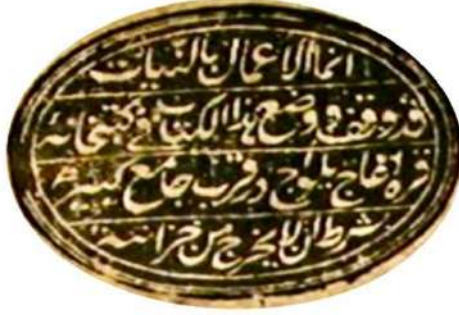 انما الاعمال بالنيات
قد وقف و وضع هذا الكتاب في كتبخانه
قره
قرب جامع كبير
شرط ان لا يخرج من خزانته